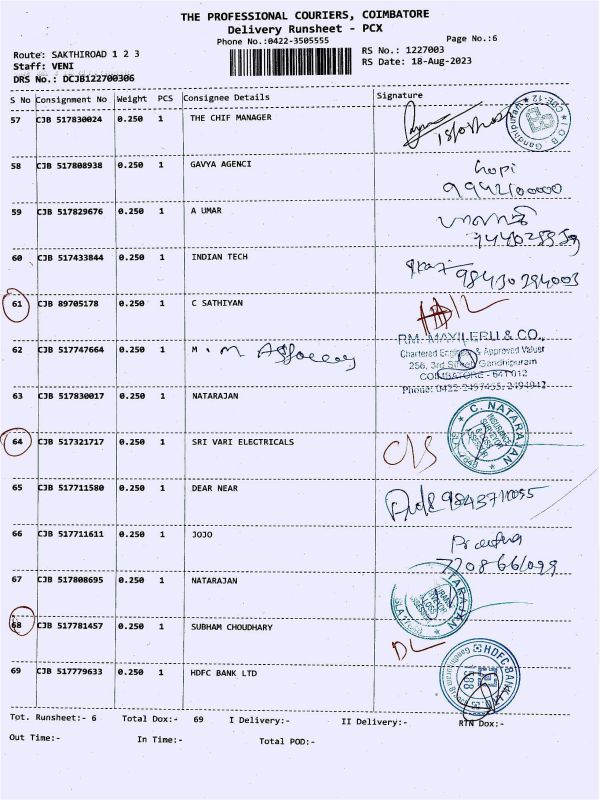 THE PROFESSIONAL COURIERS, COIMBATORE
Delivery Runsheet - PCX
Phone No.:0422-3505555
Page No.:6
Route: SAKTHIROAD 1 2 3
RS No.: 1227003
Staff: VENI
RS Date: 18-Aug-2023
DRS No.: DCJB122700306
S No Consignment No Weight PCS Consignee Details Signature
57 CJB 517830024 0.250 1 THE CHIF MANAGER
58 CJB 517808938 0.250 1 GAVYA AGENCI Gopi
9942100000
59 CJB 517829676 0.250 1 A UMAR
60 CJB 517433844 0.250 1 INDIAN TECH
61 CJB 89705178 0.250 1 C SATHIYAN
62 CJB 517747664 0.250 1 M . M
RM. MAYILERU & CO.,
Chartered Engineer & Approved Valuer
256, 3rd Street, Gandhipuram
COIMBATORE - 641 012
Phone: 0422-2457455, 2494942
63 CJB 517830017 0.250 1 NATARAJAN
C. NATARAJAN
INSURANCE SURVEYOR & LOSS ASSESSOR
64 CJB 517321717 0.250 1 SRI VARI ELECTRICALS
65 CJB 517711580 0.250 1 DEAR NEAR
66 CJB 517711611 0.250 1 JOJO
67 CJB 517808695 0.250 1 NATARAJAN
68 CJB 517781457 0.250 1 SUBHAM CHOUDHARY DL
69 CJB 517779633 0.250 1 HDFC BANK LTD
HDFC BANK
Tot. Runsheet:- 6 Total Dox:- 69 I Delivery:- II Delivery:- RTN Dox:-
Out Time:- In Time:- Total POD:-